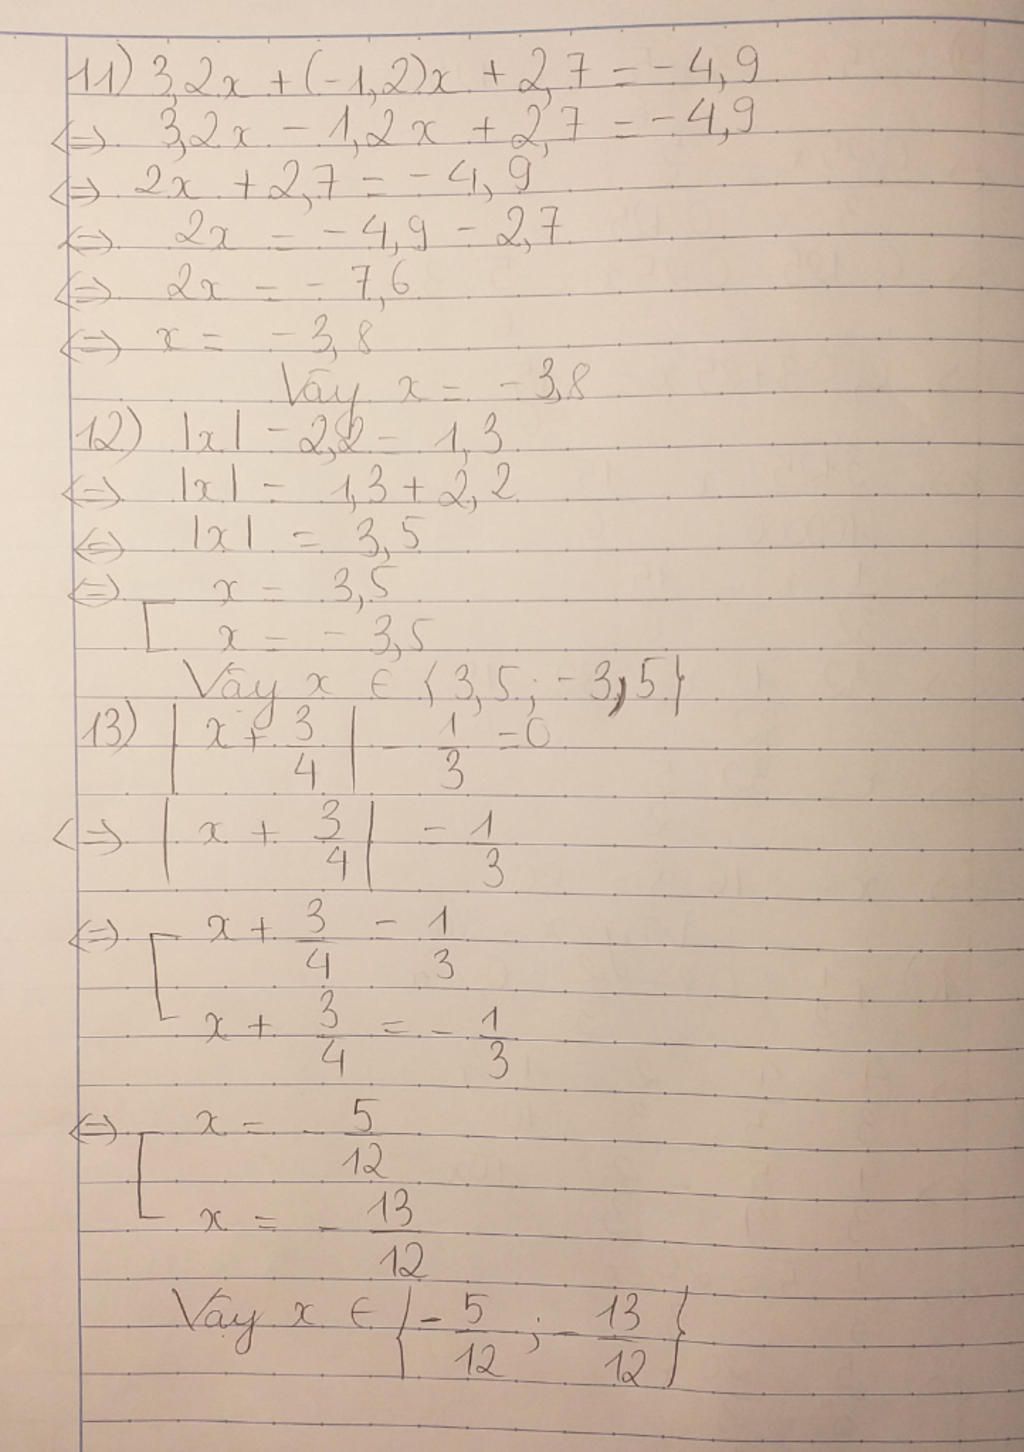 11) 3,2x + (-1,2)x + 2,7 = -4,9
<=> 3,2x - 1,2x + 2,7 = -4,9
<=> 2x + 2,7 = -4,9
<=> 2x = -4,9 - 2,7
<=> 2x = -7,6
<=> x = -3,8
Vậy x = -3,8
12) |x| - 2,2 = 1,3
<=> |x| = 1,3 + 2,2
<=> |x| = 3,5
<=> [ x = 3,5
x = -3,5
Vậy x ∈ {3,5; -3,5}
13) |x + 3/4| - 1/3 = 0
<=> |x + 3/4| = 1/3
<=> [ x + 3/4 = 1/3
x + 3/4 = -1/3
<=> [ x = -5/12
x = -13/12
Vậy x ∈ {-5/12; -13/12}